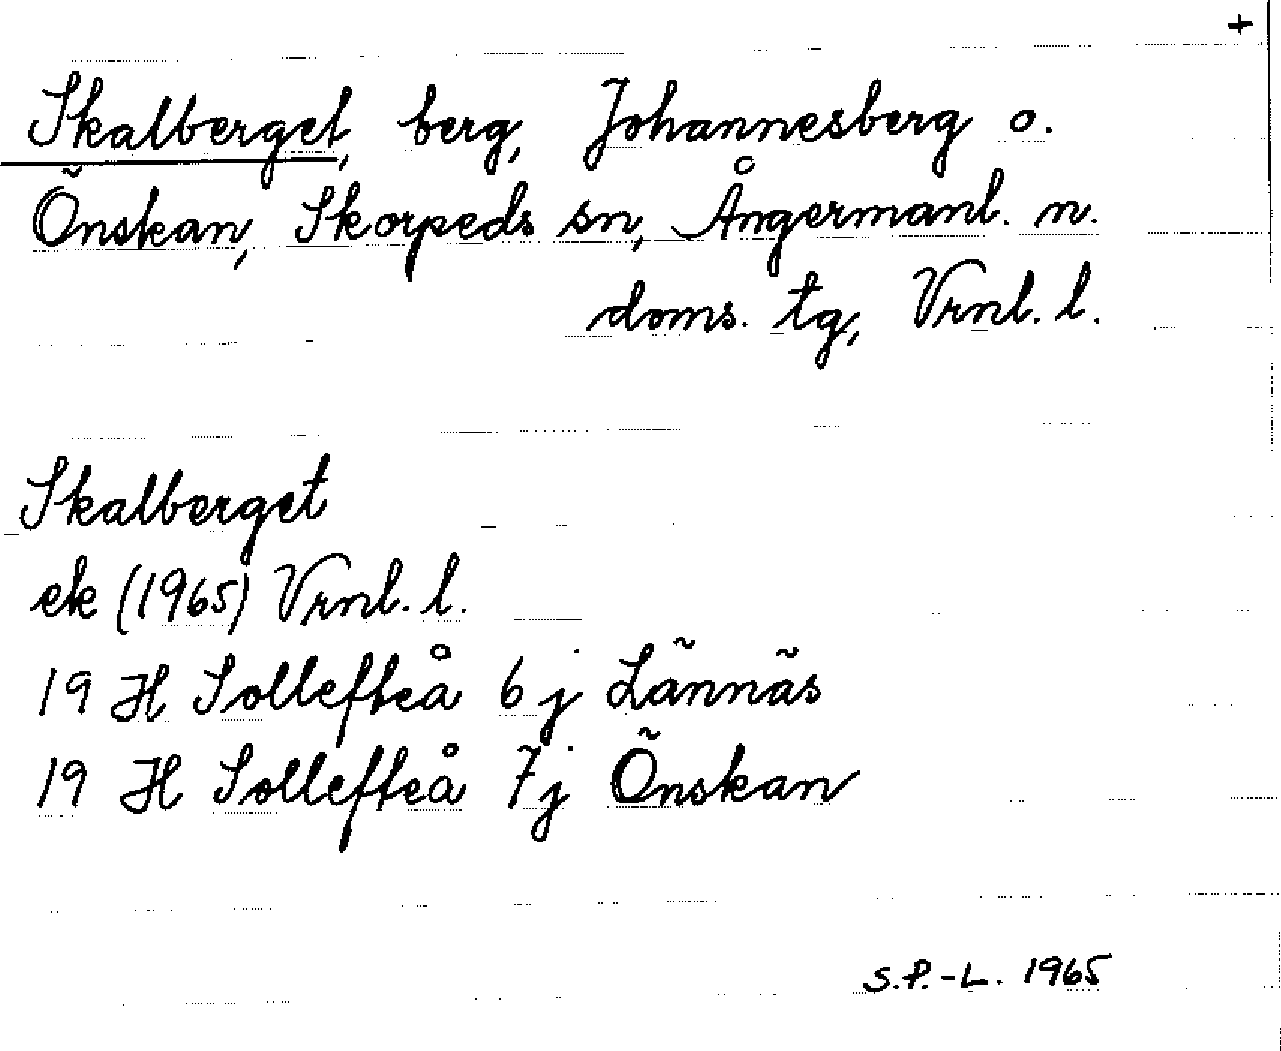 +
Skalberget, berg, Johannesberg o.
Önskan, Skorpeds sn, Ångermanl. n.
doms. tg, Vrnl. l.
Skalberget
ek (1965) Vrnl. l.
19 H Sollefteå 6 j Lännäs
19 H Sollefteå 7j Önskan
S.P.-L. 1965